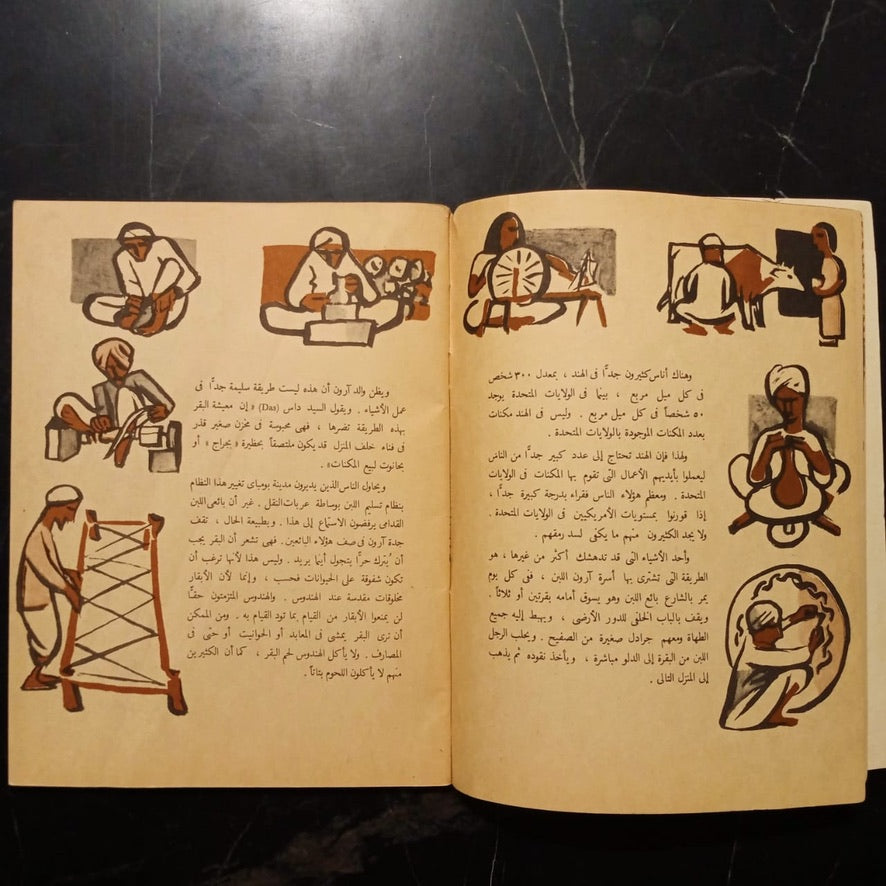 وهناك أناس كثيرون جدًّا فى الهند ، بمعدل ٣٠٠ شخص
فى كل ميل مربع ، بينما فى الولايات المتحدة يوجد
٥٠ شخصاً فى كل ميل مربع . وليس فى الهند مكنات
بعدد المكنات الموجودة بالولايات المتحدة .
ولهذا فإن الهند تحتاج إلى عدد كبير جدًّا من الناس
ليعملوا بأيديهم الأعمال التى تقوم بها المكنات فى الولايات
المتحدة . ومعظم هؤلاء الناس فقراء بدرجة كبيرة جدًّا ،
إذا قورنوا بمستويات الأمريكيين فى الولايات المتحدة .
ولا يجد الكثيرون منهم ما يكفى لسد رمقهم .
وأحد الأشياء التى قد تدهشك أكثر من غيرها ، هو
الطريقة التى تشترى بها أسرة آرون اللبن ، ففى كل يوم
يمر بالشارع بائع اللبن وهو يسوق أمامه بقرتين أو ثلاثاً .
ويقف بالباب الخلفى للدور الأرضى ، ويهبط إليه جميع
الطهاة ومعهم جرادل صغيرة من الصفيح . ويحلب الرجل
اللبن من البقرة إلى الدلو مباشرة ، ويأخذ نقوده ثم يذهب
إلى المنزل التالى .
ويظن والد آرون أن هذه ليست طريقة سليمة جدًّا فى
عمل الأشياء . ويقول السيد داس (Das) « إن معيشة البقر
بهذه الطريقة تضرها ، فهى محبوسة فى مخزن صغير قذر
فى فناء خلف المنزل قد يكون ملتصقاً بحظيرة « بجراج » أو
بحانوت لبيع المكنات» .
ويحاول الناس الذين يديرون مدينة بومباى تغيير هذا النظام
بنظام تسليم اللبن بوساطة عربات النقل . غير أن بائعى اللبن
القدامى يرفضون الاستماع إلى هذا . وبطبيعة الحال ، تقف
جدة آرون فى صف هؤلاء البائعين . فهى تشعر أن البقر يجب
أن يُترك حرًّا يتجول أينما يريد . وليس هذا لأنها ترغب أن
تكون شفوقة على الحيوانات فحسب ، وإنما لأن الأبقار
مخلوقات مقدسة عند الهندوس . والهندوس المتزمتون حقًّا
لن يمنعوا الأبقار من القيام بما تود القيام به . ومن الممكن
أن ترى البقر يمشى فى المعابد أو الحوانيت أو حتى فى
المصارف . ولا يأكل الهندوس لحم البقر ، كما أن الكثيرين
منهم لا يأكلون اللحوم بتاتاً .